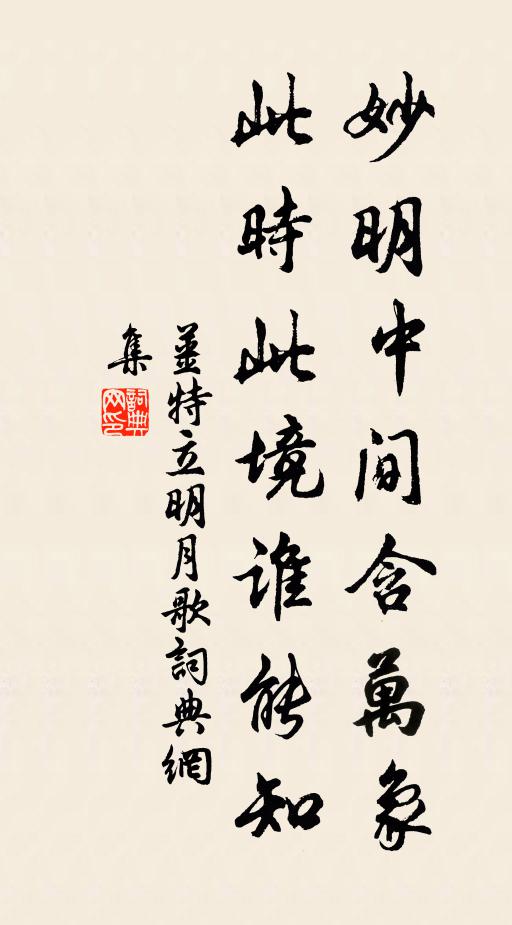 妙明中间含萬象
此時此境誰能知
姜特立明月歌詞典網
集
詞典
网印